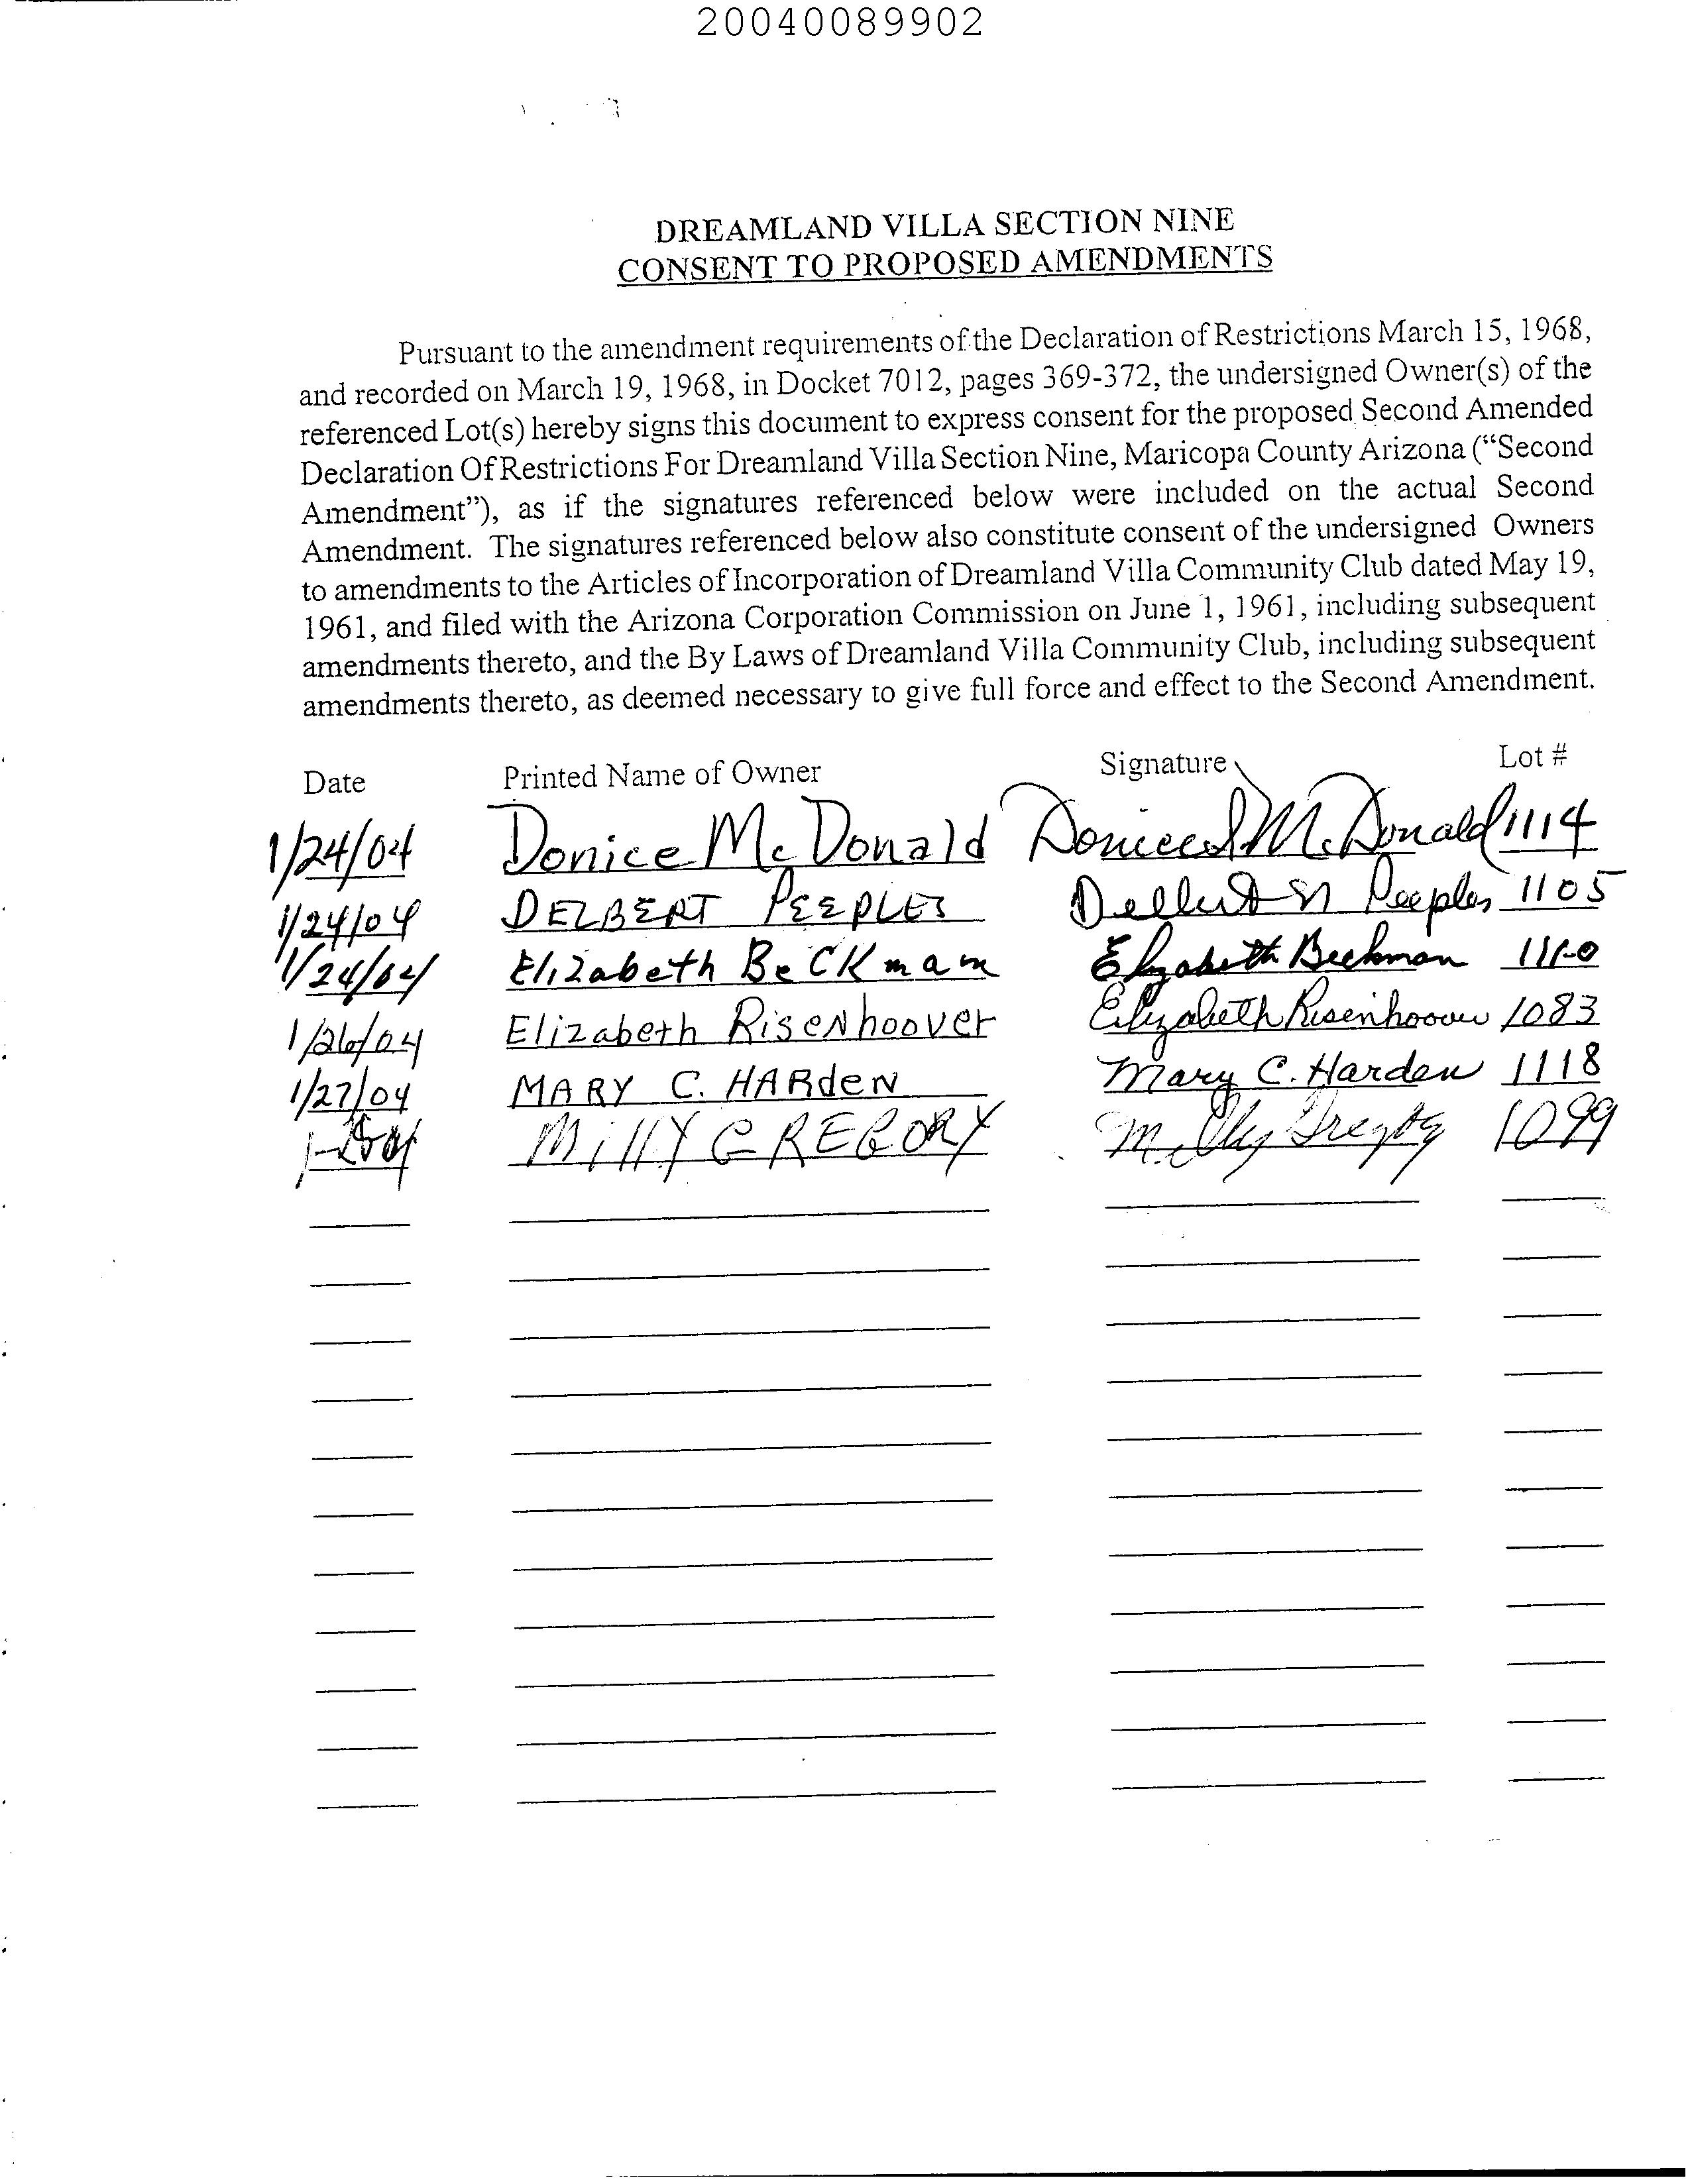 20040089902
DREAMLAND VILLA SECTION NINE
CONSENT TO PROPOSED AMENDMENTS
Pursuant to the amendment requirements of the Declaration of Restrictions March 15, 1968,
and recorded on March 19, 1968, in Docket 7012, pages 369-372, the undersigned Owner(s) of the
referenced Lot(s) hereby signs this document to express consent for the proposed Second Amended
Declaration Of Restrictions For Dreamland Villa Section Nine, Maricopa County Arizona (“Second
Amendment”), as if the signatures referenced below were included on the actual Second
Amendment. The signatures referenced below also constitute consent of the undersigned Owners
to amendments to the Articles of Incorporation of Dreamland Villa Community Club dated May 19,
1961, and filed with the Arizona Corporation Commission on June 1, 1961, including subsequent
amendments thereto, and the By Laws of Dreamland Villa Community Club, including subsequent
amendments thereto, as deemed necessary to give full force and effect to the Second Amendment.
Date Printed Name of Owner Signature Lot #
1/24/04 Donice McDonald Donice McDonald 1114
1/24/04 DELBERT PEEPLES Delbert N Peeples 1105
1/24/04 Elizabeth BeCKmam Elizabeth Beckman
1/26/04 Elizabeth Risenhoover Elizabeth Risenhoover 1083
1/27/04 MARY C. HARdeN Mary C. Harden 1118
MillY GREGORY Milly Gregory 1099